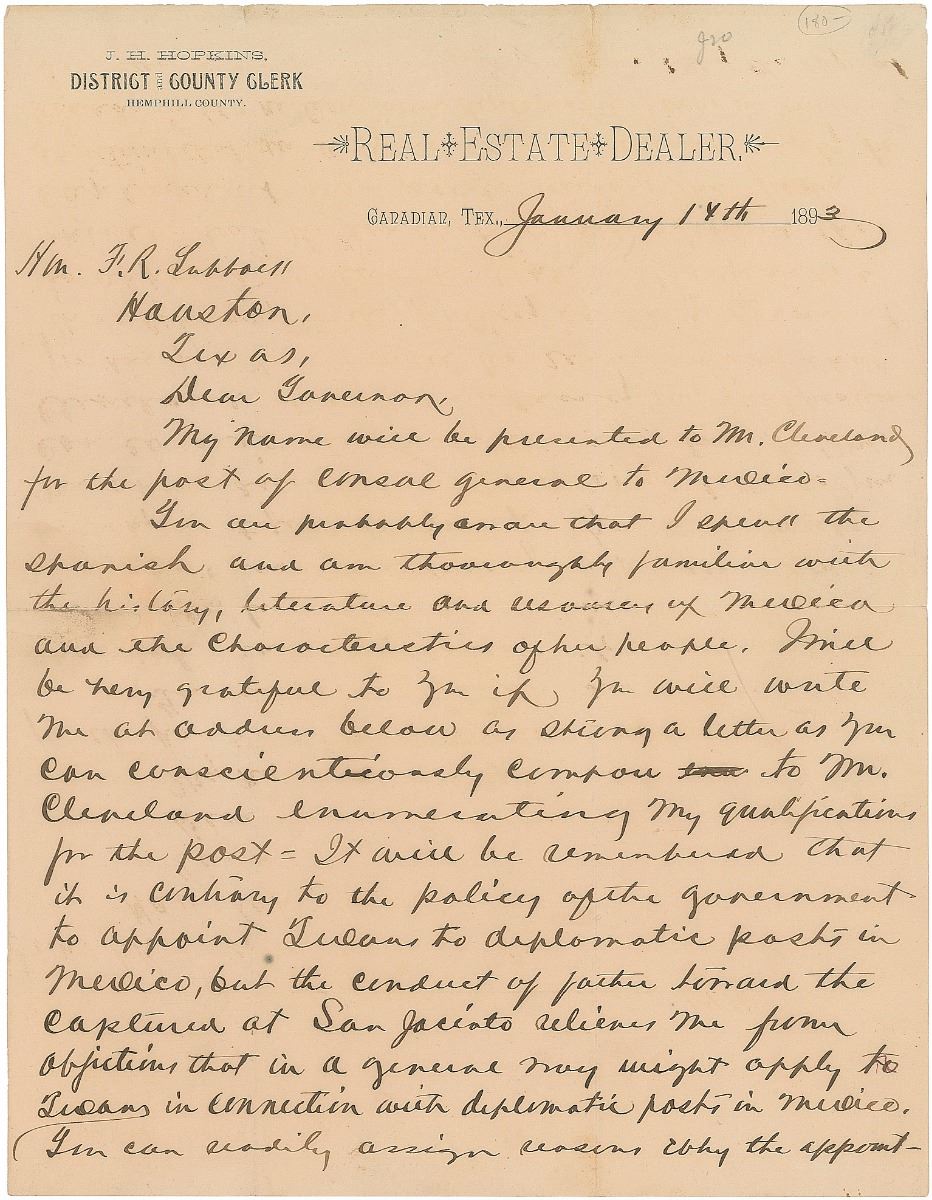 180-
J. H. HOPKINS,
DISTRICT and COUNTY CLERK
HEMPHILL COUNTY.
REAL ESTATE DEALER.
CANADIAN, TEX., January 14th 1893
Hon. F. R. Lubbock
Houston,
Texas,
Dear Governor,
My name will be presented to Mr. Cleveland
for the post of consul general to Mexico =
You are probably aware that I speak the
Spanish and am thoroughly familiar with
the history, literature and resources of Mexico
and the characteristics of her people. I will
be very grateful to you if you will write
me at address below as strong a letter as you
can conscientiously to Mr.
Cleveland enumerating my qualifications
for the post = It will be remembered that
it is contrary to the policy of the government
to appoint Texans to diplomatic posts in
Mexico, but the conduct of father toward the
captured at San Jacinto relieves me from
objections that in a general way might apply to
Texans in connection with diplomatic posts in Mexico.
You can readily assign reasons why the appoint-